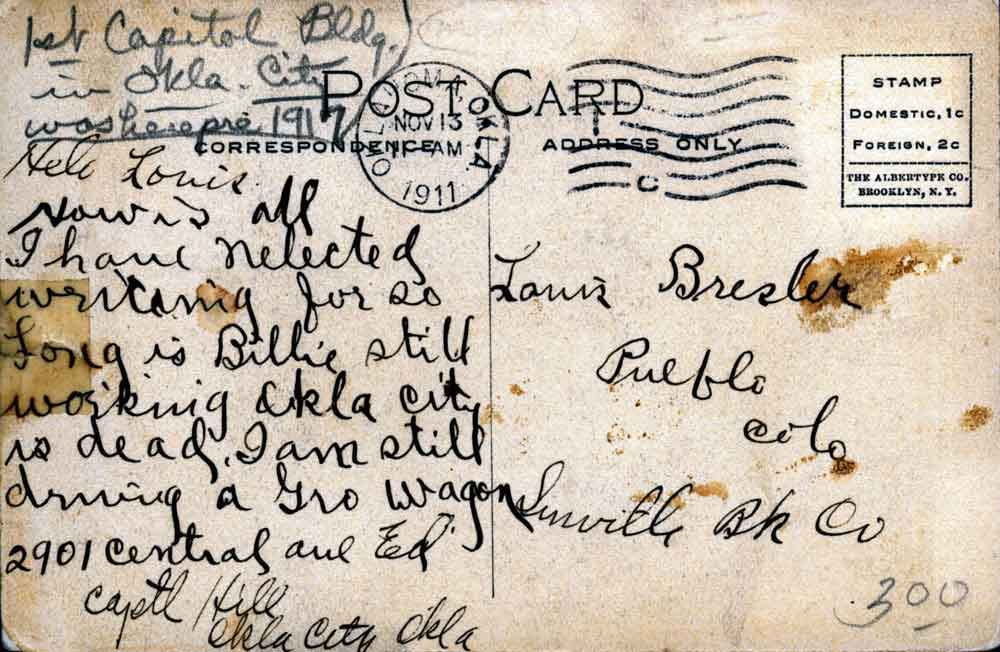 1st Capitol Bldg.
in Okla. City
was here pre 1917
POST CARD
CORRESPONDENCE
ADDRESS ONLY
NOV 13
AM
1911
OKLA.
STAMP
DOMESTIC, 1c
FOREIGN, 2c
THE ALBERTYPE CO.
BROOKLYN, N. Y.
Helo Louis
How is all
I have nelected
writing for so
Long is Billie still
working Okla city
is dead. I am still
driving a Gro wagon
2901 central ave Ed
Captl Hill
Okla City Okla
Louis Bresler
Pueblo
Colo
Bk Co
300